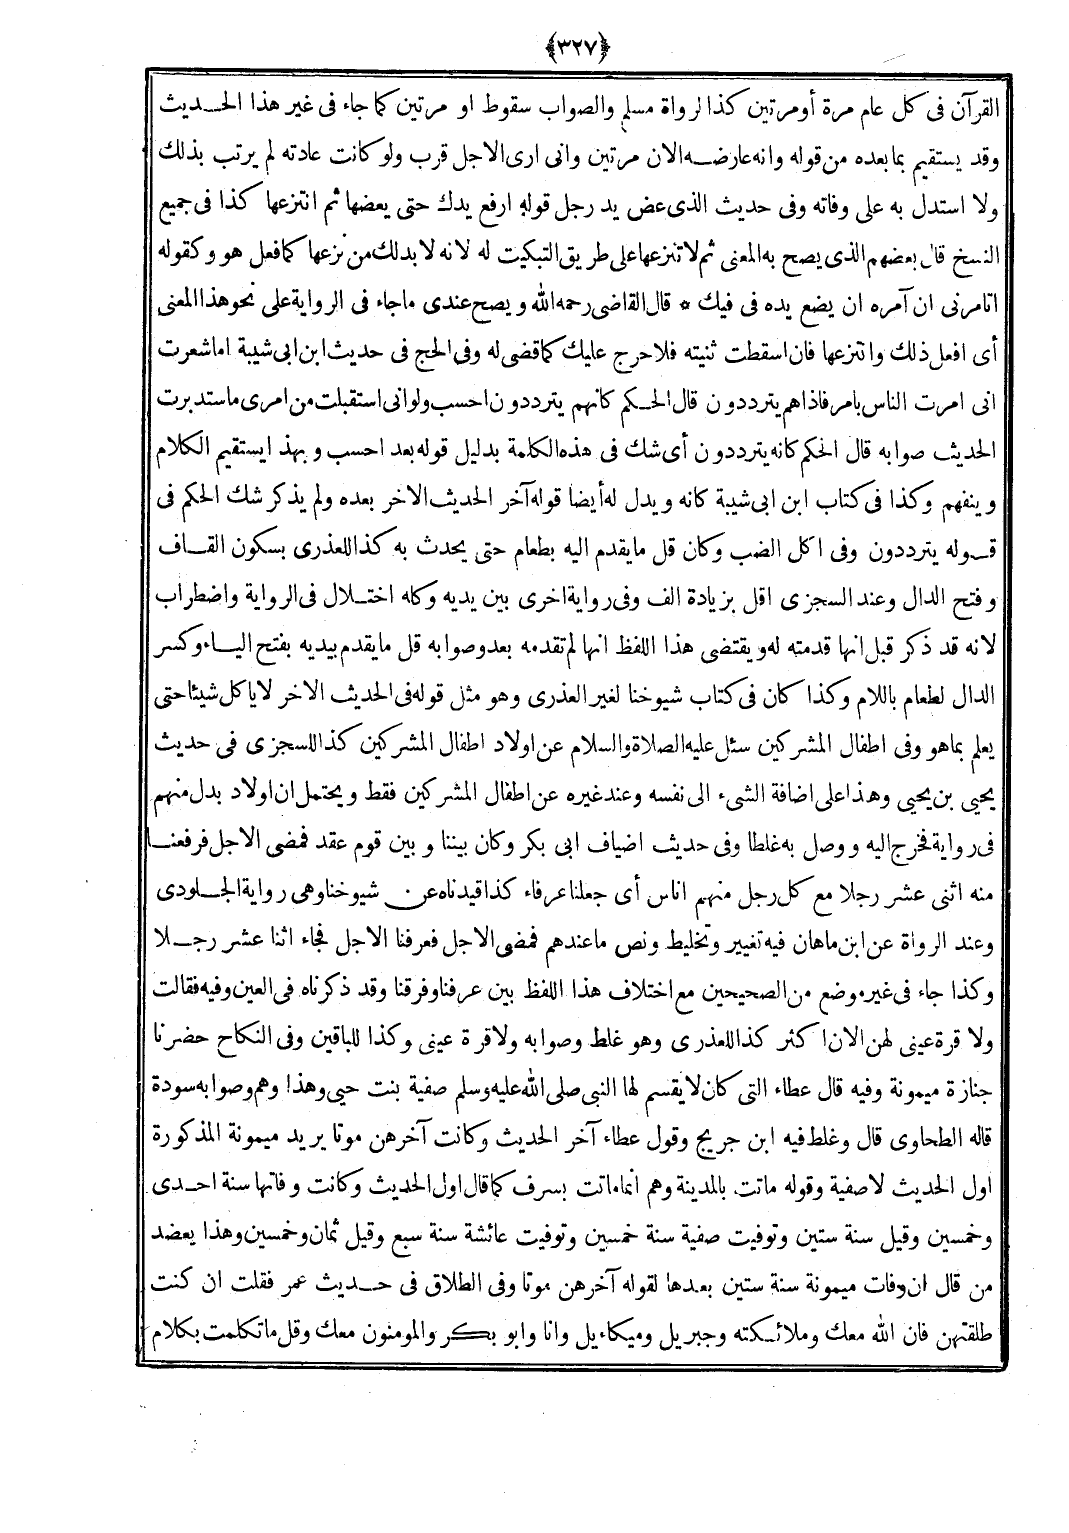 ﴿٣٢٧﴾
القرآن فى كل عام مرة أو مرتين كذا لرواة مسلم والصواب سقوط او مرتين كما جاء فى غير هذا الحديث
وقد يستقيم بما بعده من قوله وانه عارضه الان مرتين وانى ارى الاجل قرب ولو كانت عادته لم يرتب بذلك
ولا استدل به على وفاته وفى حديث الذى عض يد رجل قوله ارفع يدك حتى يعضها ثم انتزعها كذا فى جميع
النسخ قال بعضهم الذى يصح به المعنى ثم لا تنزعها على طريق التبكيت له لانه لا بد لك من نزعها كما فعل هو وكقوله
اتامرنى ان آمره ان يضع يده فى فيك * قال القاضى رحمه الله ويصح عندى ما جاء فى الرواية على نحو هذا المعنى
أى افعل ذلك وانتزعها فان اسقطت ثنيته فلا حرج عليك كما قضى له وفى الحج فى حديث ابن ابى شيبة اما شعرت
انى امرت الناس بامر فاذا هم يترددون قال الحكم كانهم يترددون احسب ولو انى استقبلت من امرى ما ستدبرت
الحديث صوابه قال الحكم كانه يترددون أى شك فى هذه الكلمة بدليل قوله بعد احسب وبهذ ايستقيم الكلام
وينفهم وكذا فى كتاب ابن ابى شيبة كانه ويدل له أيضا قوله آخر الحديث الاخر بعده ولم يذكر شك الحكم فى
قوله يترددون وفى اكل الضب وكان قل ما يقدم اليه بطعام حتى يحدث به كذا للعذرى بسكون القاف
وفتح الدال وعند السجزى اقل بزيادة الف وفى رواية اخرى بين يديه وكله اختلال فى الرواية واضطراب
لانه قد ذكر قبل انها قدمته له ويقتضى هذا اللفظ انها لم تقدمه بعد وصوابه قل ما يقدم بيديه بفتح الياء وكسر
الدال لطعام باللام وكذا كان فى كتاب شيوخنا لغير العذرى وهو مثل قوله فى الحديث الاخر لا ياكل شيئا حتى
يعلم بما هو وفى اطفال المشركين سئل عليه الصلاة والسلام عن اولاد اطفال المشركين كذا للسجزى فى حديث
يحيى بن يحيى وهذا على اضافة الشىء الى نفسه وعند غيره عن اطفال المشركين فقط ويحتمل ان اولاد بدل منهم
فى رواية فخرج اليه ووصل به غلطا وفى حديث اضياف ابى بكر وكان بيننا وبين قوم عقد فمضى الاجل فرفعنا
منه اثنى عشر رجلا مع كل رجل منهم اناس أى جعلنا عرفاء كذا قيدناه عن شيوخنا وهى رواية الجلودى
وعند الرواة عن ابن ماهان فيه تغيير وتخليط ونص ما عندهم فمضى الاجل فعرفنا الاجل فجاء اثنا عشر رجلا
وكذا جاء فى غير موضع من الصحيحين مع اختلاف هذا اللفظ بين عرفنا وفرقنا وقد ذكرناه فى العين وفيه فقالت
ولا قرة عينى لهن الان اكثر كذا للعذرى وهو غلط وصوابه ولا قرة عينى وكذا للباقين وفى النكاح حضرنا
جنازة ميمونة وفيه قال عطاء التى كان لا يقسم لها النبى صلى الله عليه وسلم صفية بنت حيى وهذا وهم وصوابه سودة
قاله الطحاوى قال وغلط فيه ابن جريج وقول عطاء آخر الحديث وكانت آخرهن موتا يريد ميمونة المذكورة
اول الحديث لا صفية وقوله ماتت بالمدينة وهم انما ماتت بسرف كما قال اول الحديث وكانت وفاتها سنة احدى
وخمسين وقيل سنة ستين وتوفيت صفية سنة خمسين وتوفيت عائشة سنة سبع وقيل ثمان وخمسين وهذا يعضد
من قال ان وفات ميمونة سنة ستين بعدها لقوله آخرهن موتا وفى الطلاق فى حديث عمر فقلت ان كنت
طلقتهن فان الله معك وملائكته وجبريل وميكاءيل وانا وابو بكر والمومنون معك وقل ما تكلمت بكلام